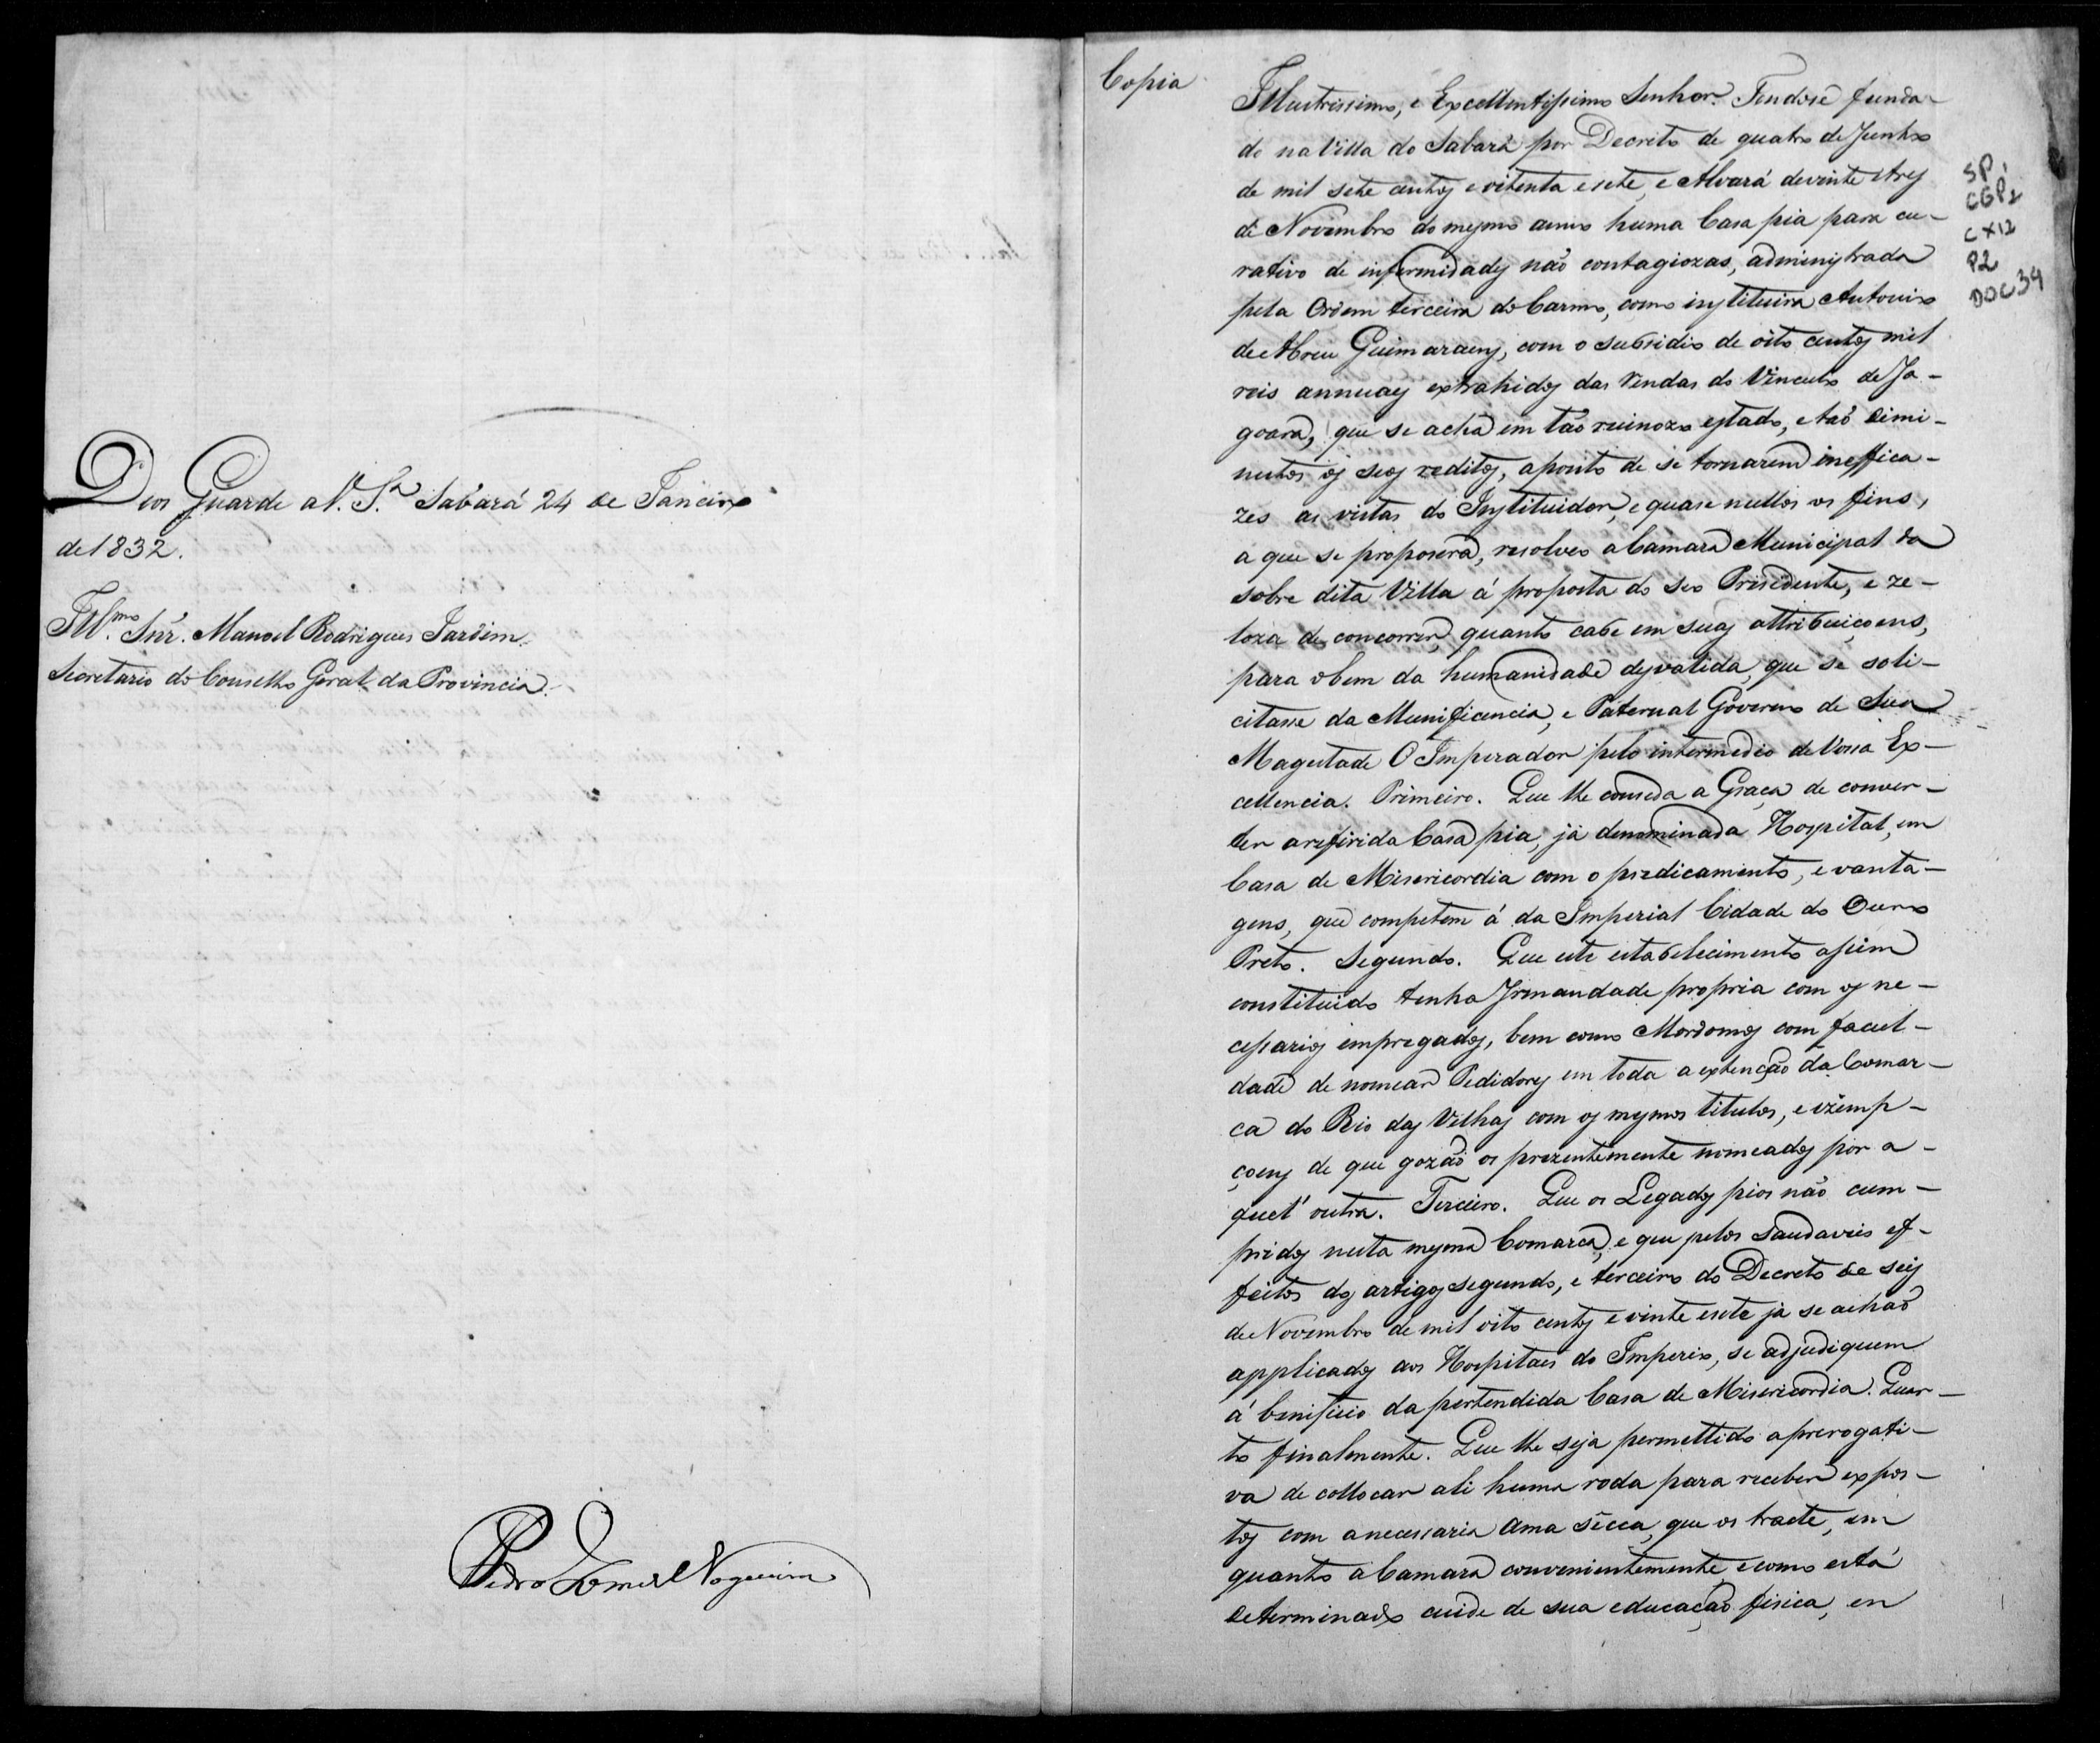 Deos Guarde a V. S.ª Sabará 24 de Janeiro
de 1832.
Ill.mo Snr. Manoel Rodrigues Jardim.
Secretario do Conselho Geral da Provincia.
Pedro Gomes Nogueira
Copia
Illustrissimo, e Excellentissimo Senhor. Tendose funda-
do na Villa do Sabará por Decreto de quatro de Junho
de mil sete centos e oitenta e sete, e Alvará de vinte e tres
de Novembro do mesmo anno huma Casa pia para cu-
rativo de infermidades não contagiozas, administrada
pela Ordem terceira do Carmo, como instituira Antonio
de Abreu Guimaraens, com o subsidio de oito centos mil
reis annuaes extrahidos das rendas do Vinculo de Ja-
goara, que se acha em tão ruinozo estado, e taõ dimi-
nutos os seos reditos, a ponto de se tornarem ineffica-
zes as vistas do Instituidor, e quase nullos os fins,
a que se proposera, resolveo a Camara Municipal da
sobre dita Villa á proposta do seo Prisidente, e ze-
loza de concorrer, quanto cabe em suas attribuiçoens,
para o bem da humanidade desvalida, que se soli-
citasse da Munificencia, e Paternal Governo de Sua
Magestade O Imperador pelo intermedio de Vossa Ex-
cellencia. Primeiro. Que lhe conseda a Graça de conver-
ter a referida Casa pia, já denominada Hospital, em
Casa de Misericordia com o predicamento, e vanta-
gens, que competem á da Imperial Cidade do Ouro
Preto. Segundo. Que este estabelecimento assim
constituido tenha Irmandade propria com os ne-
cessarios empregados, bem como Mordomos com facul-
dade de nomear Pedidores em toda a extenção da Comar-
ca do Rio das Velhas com os mesmos titulos, e izemp-
çoens de que gozaõ os prezentemente nomeados por a-
quel' outra. Terceiro. Que os Legados pios não cum-
pridos nesta mesma Comarca, e que pelos saudaveis ef-
feitos dos artigos segundo, e terceiro do Decreto de seis
de Novembro de mil oito centos e vinte e sete já se achaõ
applicados aos Hospitaes do Imperio, se adjudiquem
á beneficio da pertendida Casa de Misericordia. Quar-
to finalmente. Que lhe seja permettido a prerogati-
va de collocar ali huma roda para receber expos-
tos com a necessaria Ama sêcca, que os tracte, em
quanto a Camara convenientemente, e como está
determinado cuide de sua educação fisica, en
SP,
CGP1
CX12
P2
DOC 34